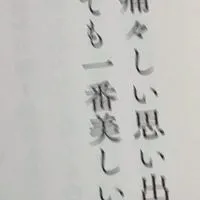 痛々しい思い出
ても一番美しい